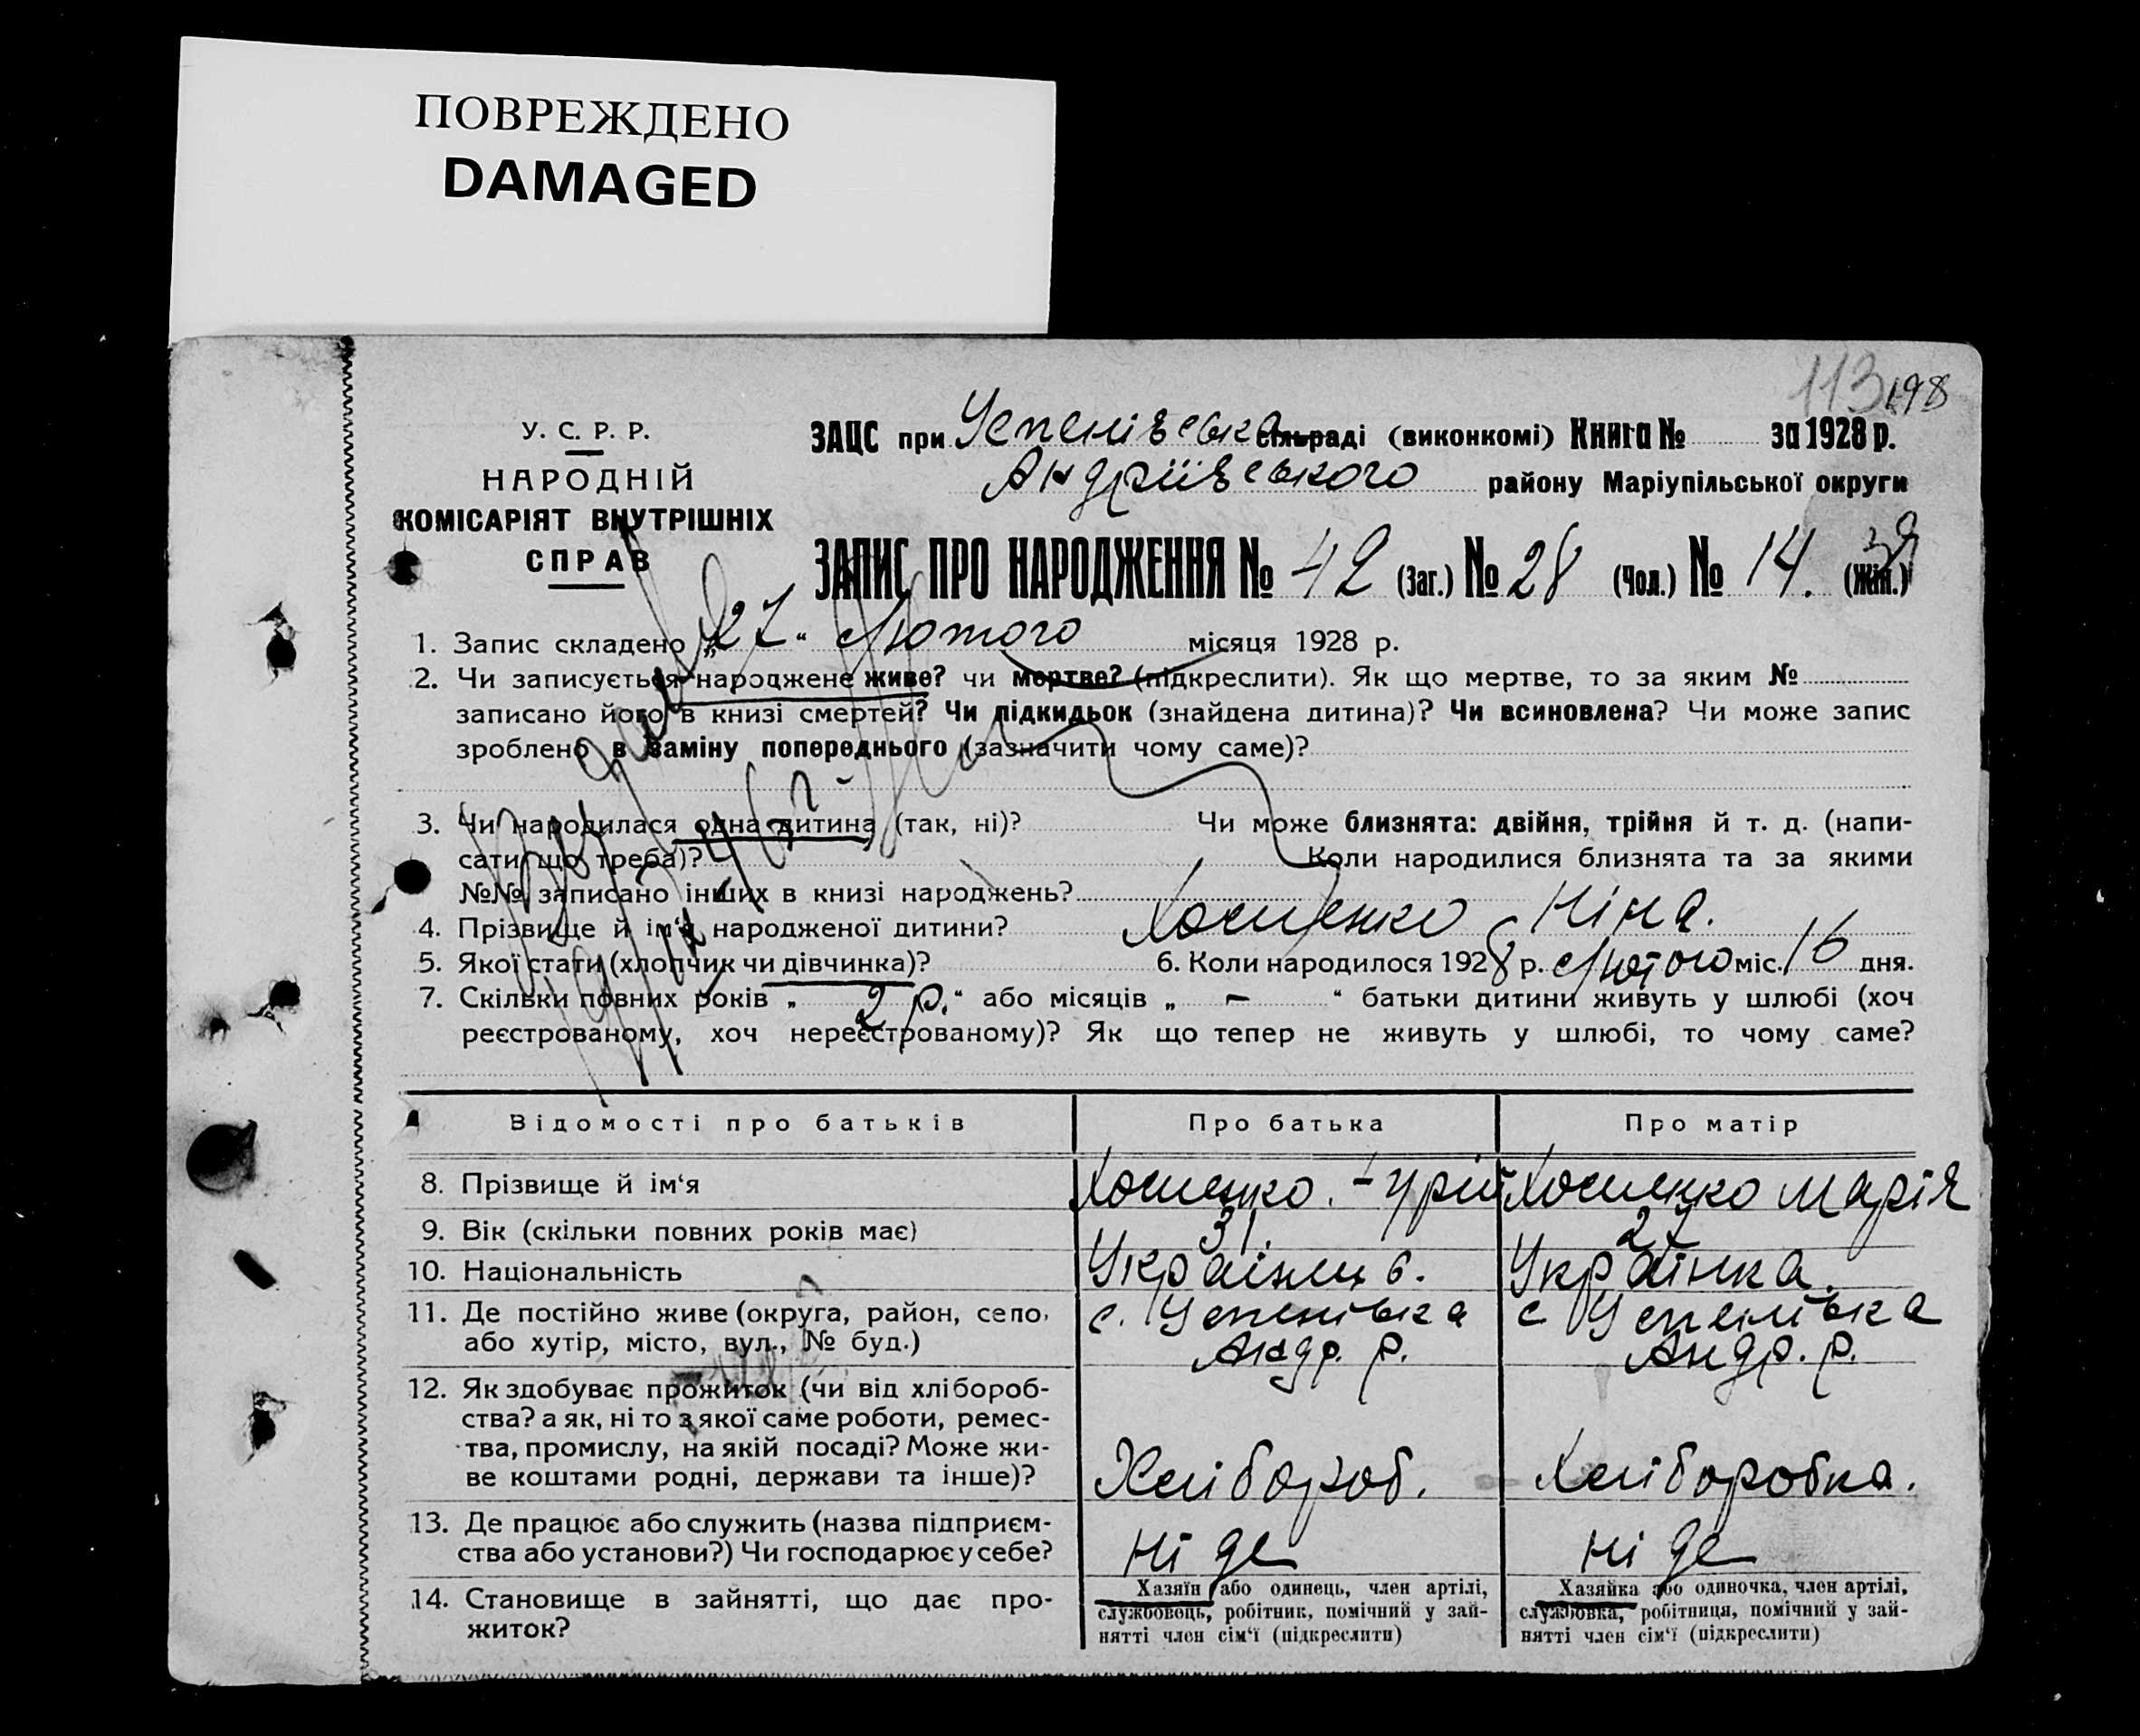 ПОВРЕЖДЕНО
DAMAGED
113 198
У. С. Р. Р.
НАРОДНІЙ
КОМІСАРІЯТ ВНУТРІШНІХ
СПРАВ
ЗАЦС при Успенівська сільраді (виконкомі) Книга № за 1928 р.
Андріївського району Маріупільської округи
ЗАПИС ПРО НАРОДЖЕННЯ № 42 (Заг.) № 28 (Чол.) № 14. (Жін.)
1. Запис складено „27“ Лютого місяця 1928 р.
2. Чи записується народжене живе? чи мертве? (підкреслити). Як що мертве, то за яким №
записано його в книзі смертей? Чи підкидьок (знайдена дитина)? Чи всиновлена? Чи може запис
зроблено в заміну попереднього (зазначити чому саме)?
3. Чи народилася одна дитина (так, ні)? Чи може близнята: двійня, трійня й т. д. (напи-
сати що треба)? Коли народилися близнята та за якими
№№ записано інших в книзі народжень?
4. Прізвище й ім‘я народженої дитини? Ніна.
5. Якої стати (хлопчик чи дівчинка)? 6. Коли народилося 1928 р. Лютого міс. 16 дня.
7. Скільки повних років „ 2 р.“ або місяців „ – “ батьки дитини живуть у шлюбі (хоч
реєстрованому, хоч нереєстрованому)? Як що тепер не живуть у шлюбі, то чому саме?
Відомості про батьків Про батька Про матір
8. Прізвище й ім‘я Марія
9. Вік (скільки повних років має) 31. 27
10. Національність Українець. Українка.
11. Де постійно живе (округа, район, село, с. Успенівка с Успенівка
або хутір, місто, вул., № буд.) Андр. р. Андр. р.
12. Як здобуває прожиток (чи від хлібороб-
ства? а як, ні то з якої саме роботи, ремес-
тва, промислу, на якій посаді? Може жи-
ве коштами родні, держави та інше)? Хлібороб. Хліборобка.
13. Де працює або служить (назва підприєм-
ства або установи?) Чи господарює у себе? Ні де Ні де
14. Становище в зайнятті, що дає про-
житок?
Хазяїн або одинець, член артілі,
службовець, робітник, помічний у зай-
нятті член сім‘ї (підкреслити)
Хазяйка або одиночка, член артілі,
службовка, робітниця, помічний у зай-
нятті член сім‘ї (підкреслити)